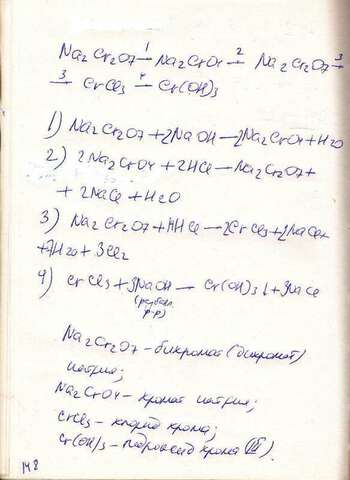 Na2Cr2O7 1→ Na2CrO4 2→ Na2Cr2O7 3→
3→ CrCl3 4→ Cr(OH)3
1) Na2Cr2O7 + 2NaOH → 2Na2CrO4 + H2O
2) 2Na2CrO4 + 2HCl → Na2Cr2O7 +
+ 2NaCl + H2O
3) Na2Cr2O7 + 14HCl → 2CrCl3 + 2NaCl +
+ 7H2O + 3Cl2
4) CrCl3 + 3NaOH → Cr(OH)3↓ + 3NaCl
р-р)
Na2Cr2O7 – бихромат (дихромат)
натрия;
Na2CrO4 – хромат натрия;
CrCl3 – хлорид хрома;
Cr(OH)3 – гидроксид хрома (III).